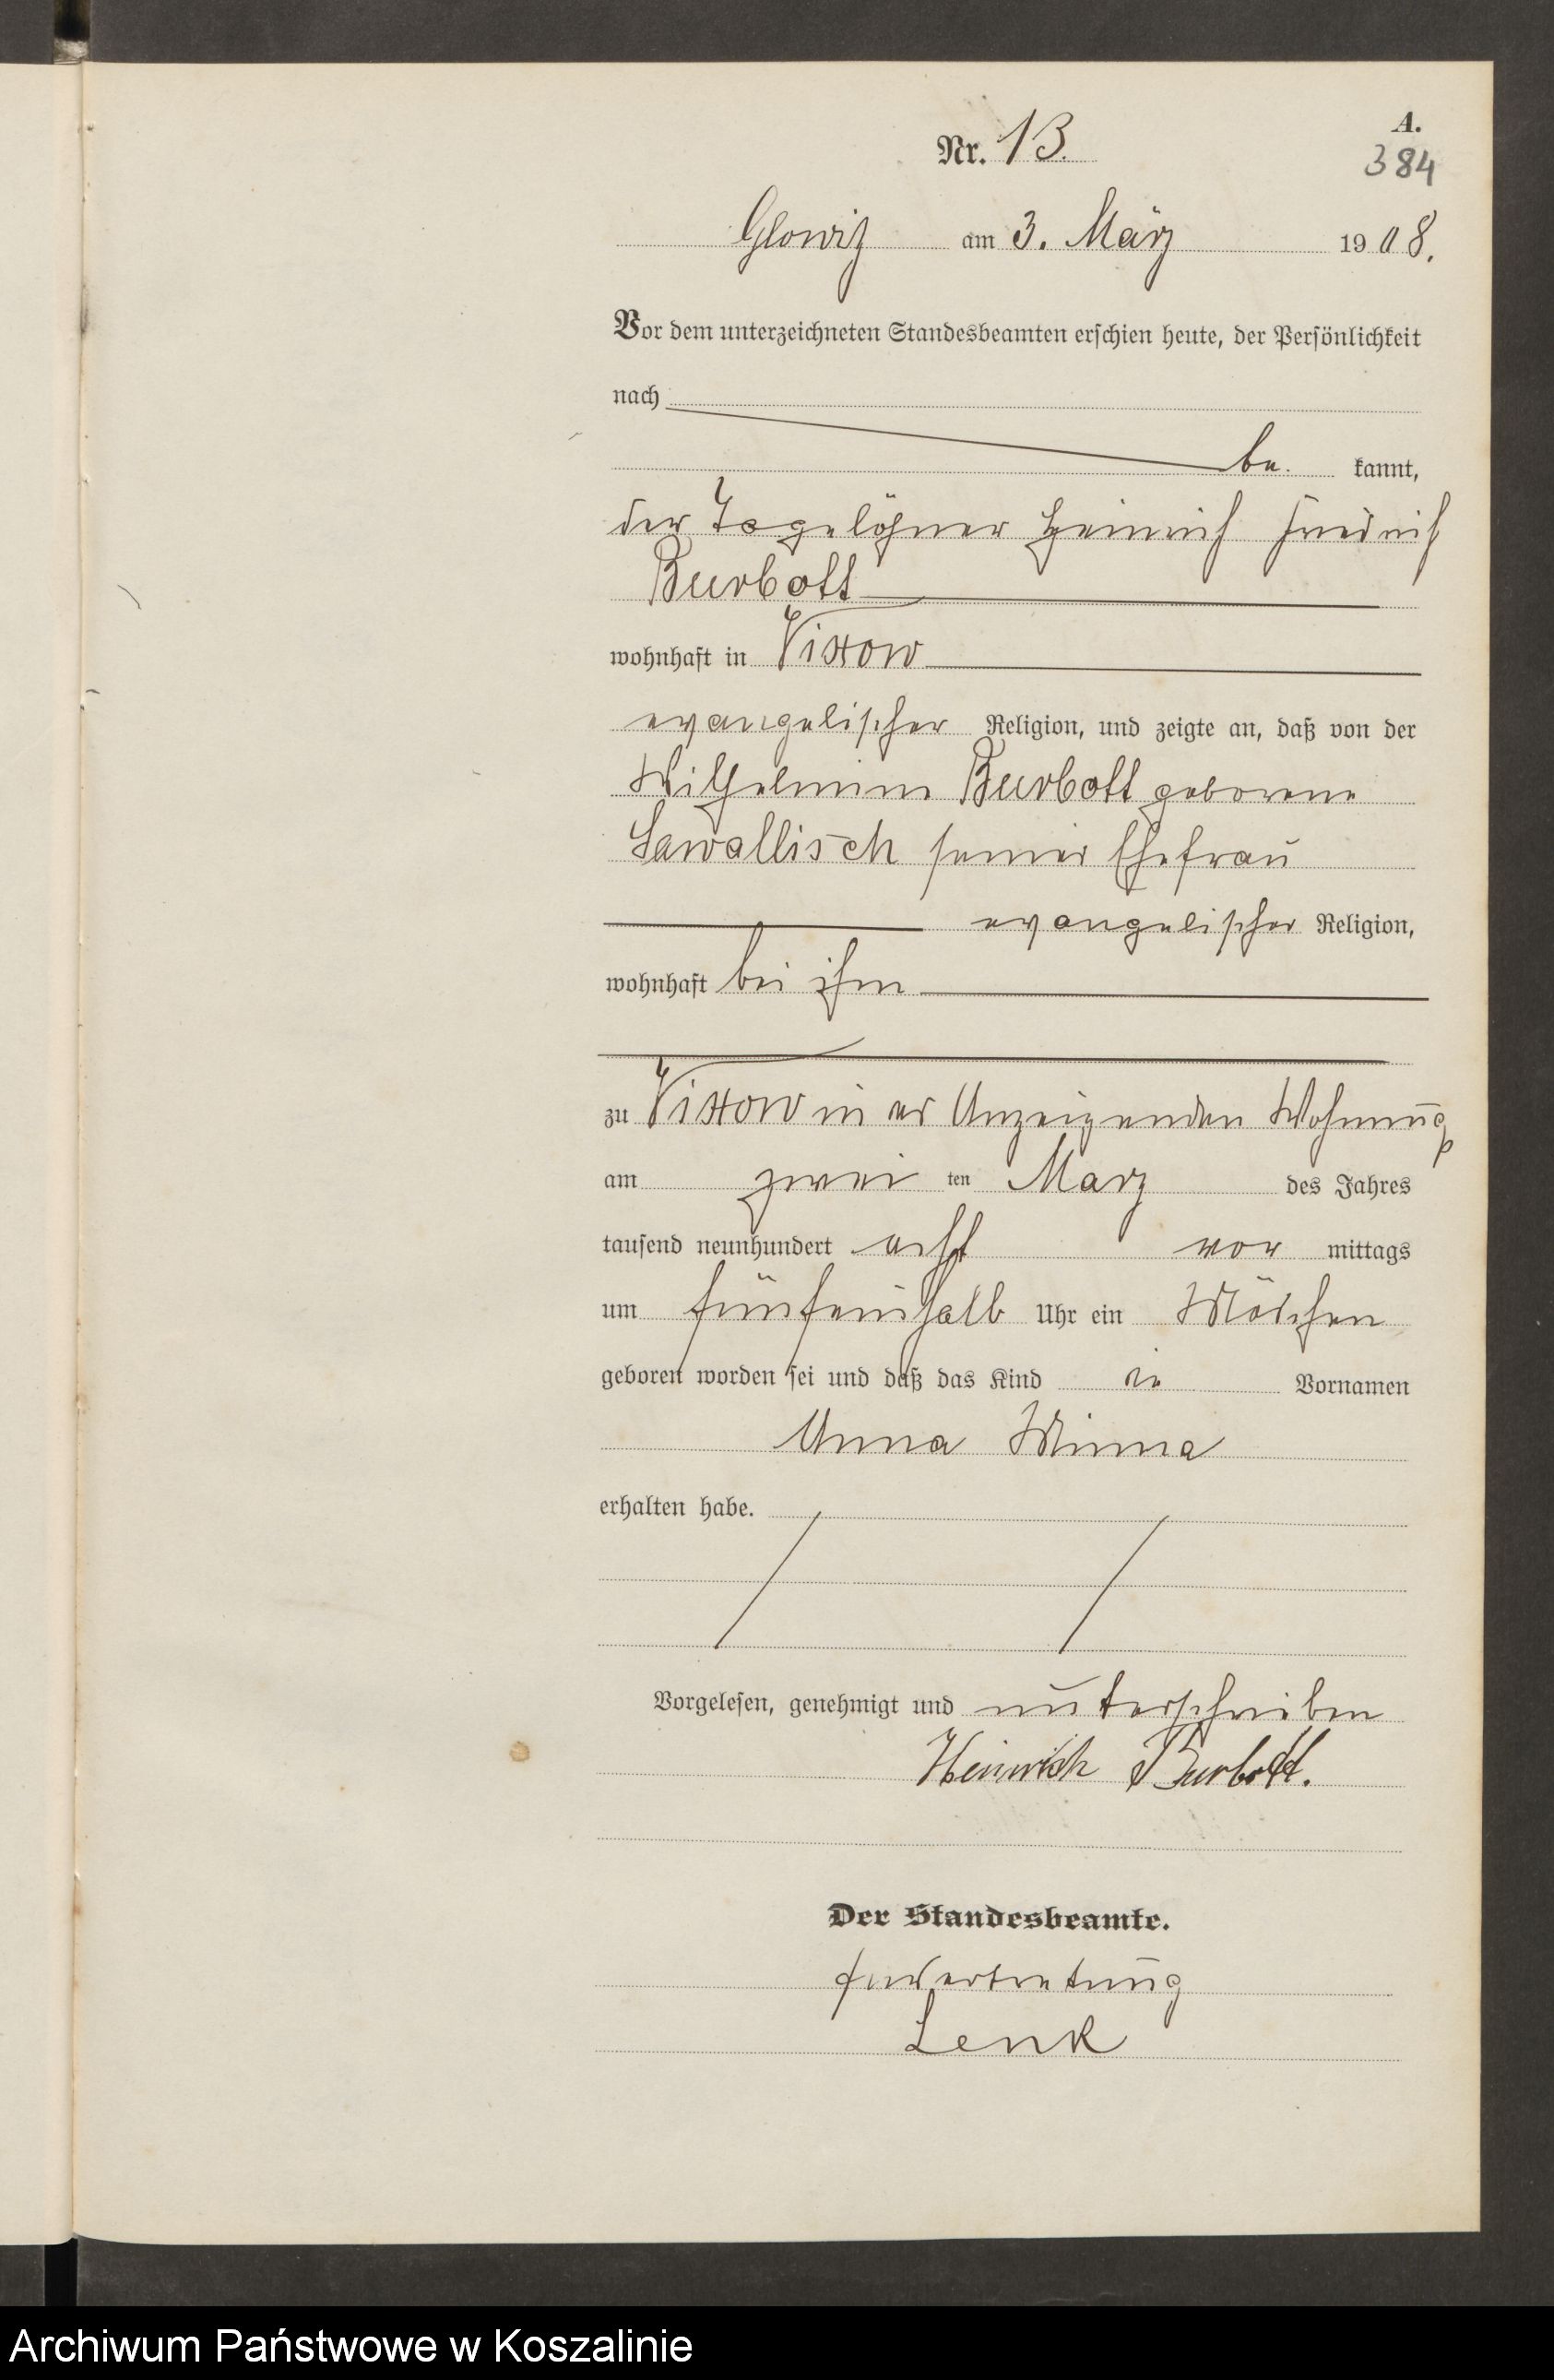 A.
Nr. 13.
384
Glowitz am 3. März 1908.
Vor dem unterzeichneten Standesbeamten erschien heute, der Persönlichkeit
nach
be. kannt,
der Tagelöhner Heinrich Friedrich
Burbott
wohnhaft in Vixow
evangelischer Religion, und zeigte an, daß von der
Wilhelmine Burbott geborene
Sawallisch seiner Ehefrau
evangelischer Religion,
wohnhaft bei ihm
zu Vixow in des Anzeigenden Wohnung
am zwei ten März des Jahres
tausend neunhundert acht vor mittags
um fünfeinhalb Uhr ein Mädchen
geboren worden sei und daß das Kind die Vornamen
Anna Minna
erhalten habe.
Vorgelesen, genehmigt und unterschrieben
Heinrich Burbott.
Der Standesbeamte.
In Vertretung
Lenk
Archiwum Państwowe w Koszalinie